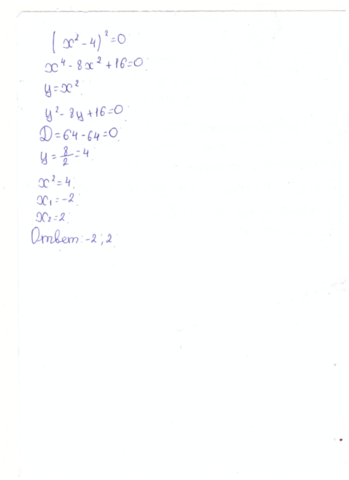 (x² - 4)² = 0
x⁴ - 8x² + 16 = 0
y = x²
y² - 8y + 16 = 0
D = 64 - 64 = 0
y = 8/2 = 4
x² = 4
x₁ = -2
x₂ = 2
Ответ: -2; 2